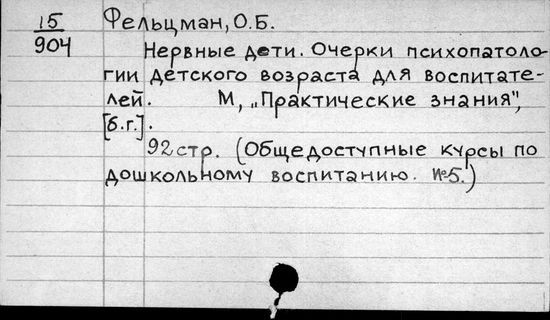 15
904
Фельцман, О.Б.
Нервные дети. Очерки психопатоло-
гии детского возраста для воспитате-
лей. М, „Практические знания",
[б.г.].
92 стр. (Общедоступные курсы по
дошкольному воспитанию. №5.)